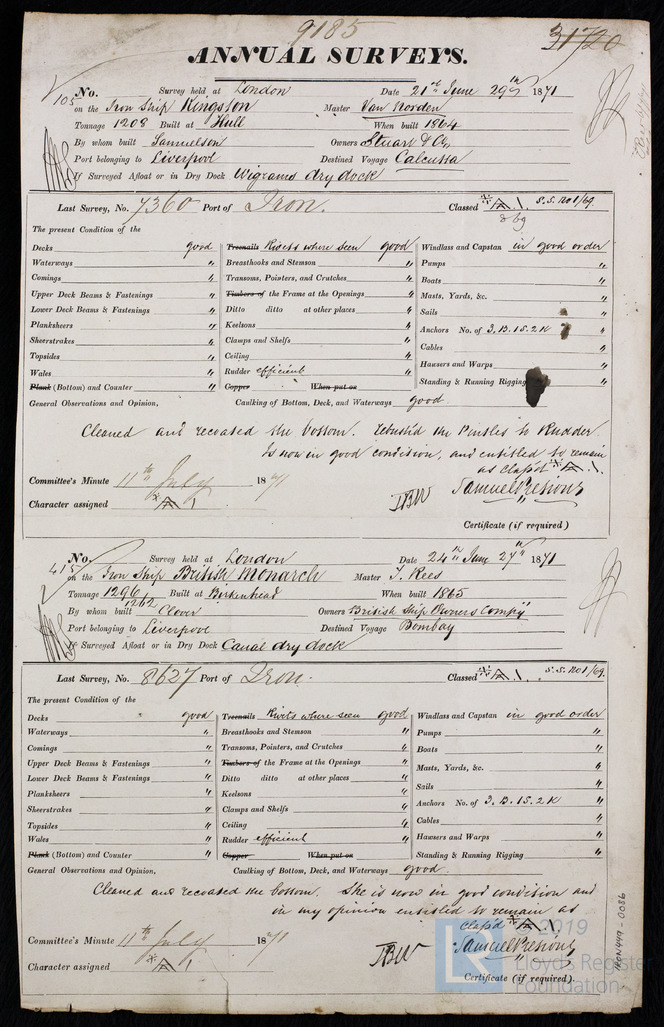 9185
31720
ANNUAL SURVEYS.
105 No. Survey held at London Date 21st June 29th 1871
on the Iron Ship Kingston Master Van Norden
Tonnage 1208 Built at Hull When built 1864
By whom built Samuelson Owners Stuart & Co
Port belonging to Liverpool Destined Voyage Calcutta
If Surveyed Afloat or in Dry Dock Wigrams dry dock
Last Survey, No. 7360 Port of Iron. Classed A 1 S.S. No 1/69.
The present Condition of the
Decks good Treenails Rivets where seen good Windlass and Capstan in good order
Waterways " Breasthooks and Stemson " Pumps "
Comings " Transoms, Pointers, and Crutches " Boats "
Upper Deck Beams & Fastenings " Timbers of the Frame at the Openings " Masts, Yards, &c. "
Lower Deck Beams & Fastenings " Ditto ditto at other places " Sails "
Planksheers " Keelsons " Anchors No. of 3.B.1S.2K "
Sheerstrakes " Clamps and Shelfs " Cables "
Topsides " Ceiling " Hawsers and Warps "
Wales " Rudder efficient Standing & Running Rigging "
Plank (Bottom) and Counter " Copper When put on
General Observations and Opinion, Caulking of Bottom, Deck, and Waterways good
Cleaned and recoated the bottom. Rebush'd the Pintles to Rudder.
Is now in good condition, and entitled to remain
as class'd A 1.
Committee's Minute 11th July 1871
Character assigned A 1
Certificate (if required)
415 No. Survey held at London Date 24th June 27th 1871
on the Iron Ship British Monarch Master T. Rees
Tonnage 1296 1262 Built at Birkenhead When built 1865
By whom built Clover Owners British Ship Owners Compy
Port belonging to Liverpool Destined Voyage Bombay
If Surveyed Afloat or in Dry Dock Canal dry dock
Last Survey, No. 8627 Port of Iron. Classed A 1 S.S. No 1/69.
The present Condition of the
Decks " good Treenails Rivets where seen good Windlass and Capstan in good order
Waterways " Breasthooks and Stemson " Pumps "
Comings " Transoms, Pointers, and Crutches " Boats "
Upper Deck Beams & Fastenings " Timbers of the Frame at the Openings " Masts, Yards, &c. "
Lower Deck Beams & Fastenings " Ditto ditto at other places " Sails "
Planksheers " Keelsons " Anchors No. of 3.B.1S.2K "
Sheerstrakes " Clamps and Shelfs " Cables "
Topsides " Ceiling " Hawsers and Warps "
Wales " Rudder efficient " Standing & Running Rigging "
Plank (Bottom) and Counter " Copper When put on
General Observations and Opinion, Caulking of Bottom, Deck, and Waterways good
Cleaned and recoated the bottom. She is now in good condition and
in my opinion entitled to remain as
class'd A 1.
Committee's Minute 11th July 1871
Character assigned A 1
Certificate (if required).
IRON449-0086
2019
Lloyd's Register
Foundation